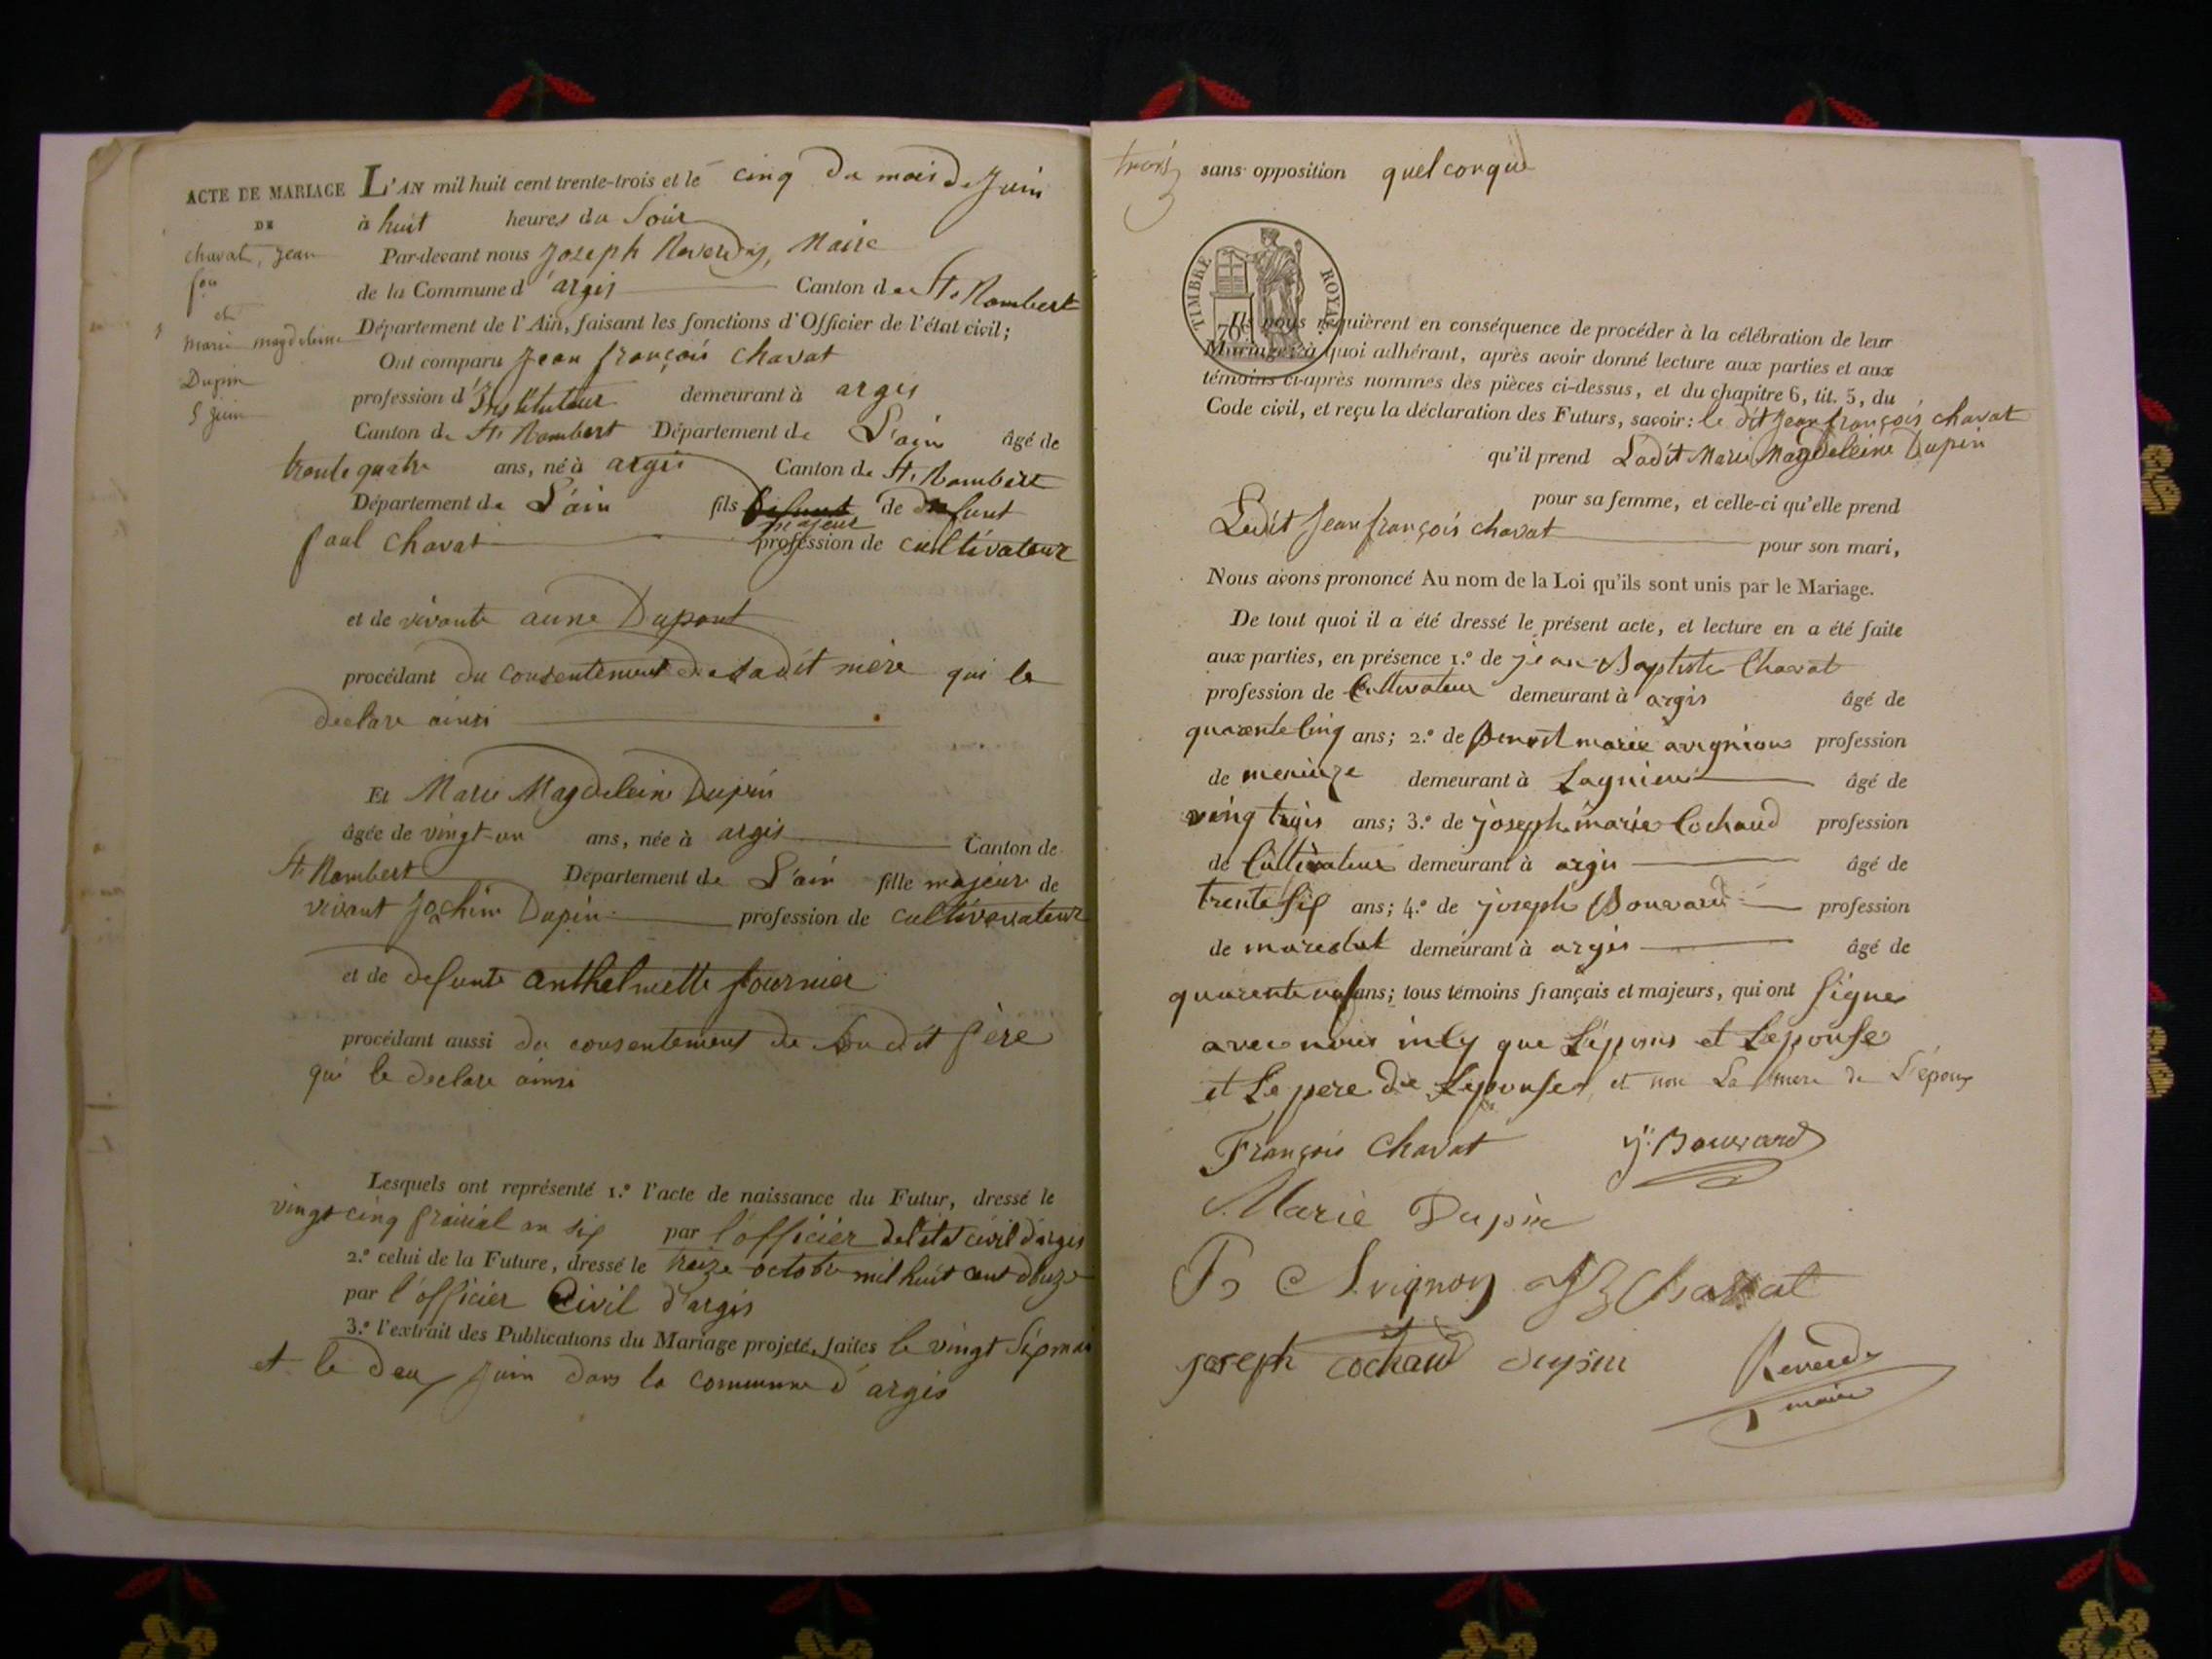 ACTE DE MARIAGE
DE
chavat, Jean
fois
et
marie magdeleine
Dupin
5 Juin
L'AN mil huit cent trente-trois et le cinq du mois de Juin
à huit heures du Soir
Par-devant nous Joseph Reverdy, Maire
de la Commune d'argis Canton de St. Rambert
Département de l'Ain, faisant les fonctions d'Officier de l'état civil;
Ont comparu Jean françois chavat
profession d'Instituteur demeurant à argis
Canton de St. Rambert Département de L'ain âgé de
trente quatre ans, né à argis Canton de St. Rambert
Département de L'ain fils majeur de defunt
paul chavat profession de cultivateur
et de vivante anne Dupont
procédant du consentement de sadit mère qui le
declare ainsi
Et Marie Magdeleine Dupin
âgée de vingt-un ans, née à argis Canton de
St. Rambert Département de L'ain fille majeur de
vivant Jochim Dupin profession de cultivavateur
et de defunte anthelmette fournier
procédant aussi du consentement de Son dit père
qui le declare ainsi
Lesquels ont représenté 1.° l'acte de naissance du Futur, dressé le
vingt cinq prairial an six par l'officier de l'état civil d'argis
2.° celui de la Future, dressé le treize octobre mil huit cent douze
par l'officier Civil d'argis
3.° l'extrait des Publications du Mariage projeté, faites le vingt Six mai
et le deux Juin dans la commune d'argis
trois
sans opposition quelconque
TIMBRE ROYAL
70
Ils nous requièrent en conséquence de procéder à la célébration de leur
Mariage; à quoi adhérant, après avoir donné lecture aux parties et aux
témoins ci-après nommés des pièces ci-dessus, et du chapitre 6, tit. 5, du
Code civil, et reçu la déclaration des Futurs, savoir: le dit Jean françois chavat
qu'il prend Ladit Marie Magdeleine Dupin
pour sa femme, et celle-ci qu'elle prend
Ledit Jean françois chavat pour son mari,
Nous avons prononcé Au nom de la Loi qu'ils sont unis par le Mariage.
De tout quoi il a été dressé le présent acte, et lecture en a été faite
aux parties, en présence 1.° de jean Baptiste Chavat
profession de Cultivateur demeurant à argis âgé de
quarente Cinq ans; 2.° de Benoit marie avignion profession
de demeurant à Lagnieu âgé de
ving trois ans; 3.° de joseph marie Cochaud profession
de Cultivateur demeurant à argis âgé de
trente Six ans; 4.° de joseph Bouvard profession
de marechal demeurant à argis âgé de
quarente neuf ans; tous témoins français et majeurs, qui ont Signe
avec nous que L'epous et L'epouse
et Le pere de Lepouse, et non La mere de L'époux
François Chavat J. Bouvard
Marie Dupin
B Avignon JB Chavat
joseph cochaud dupin Reverdy
maire